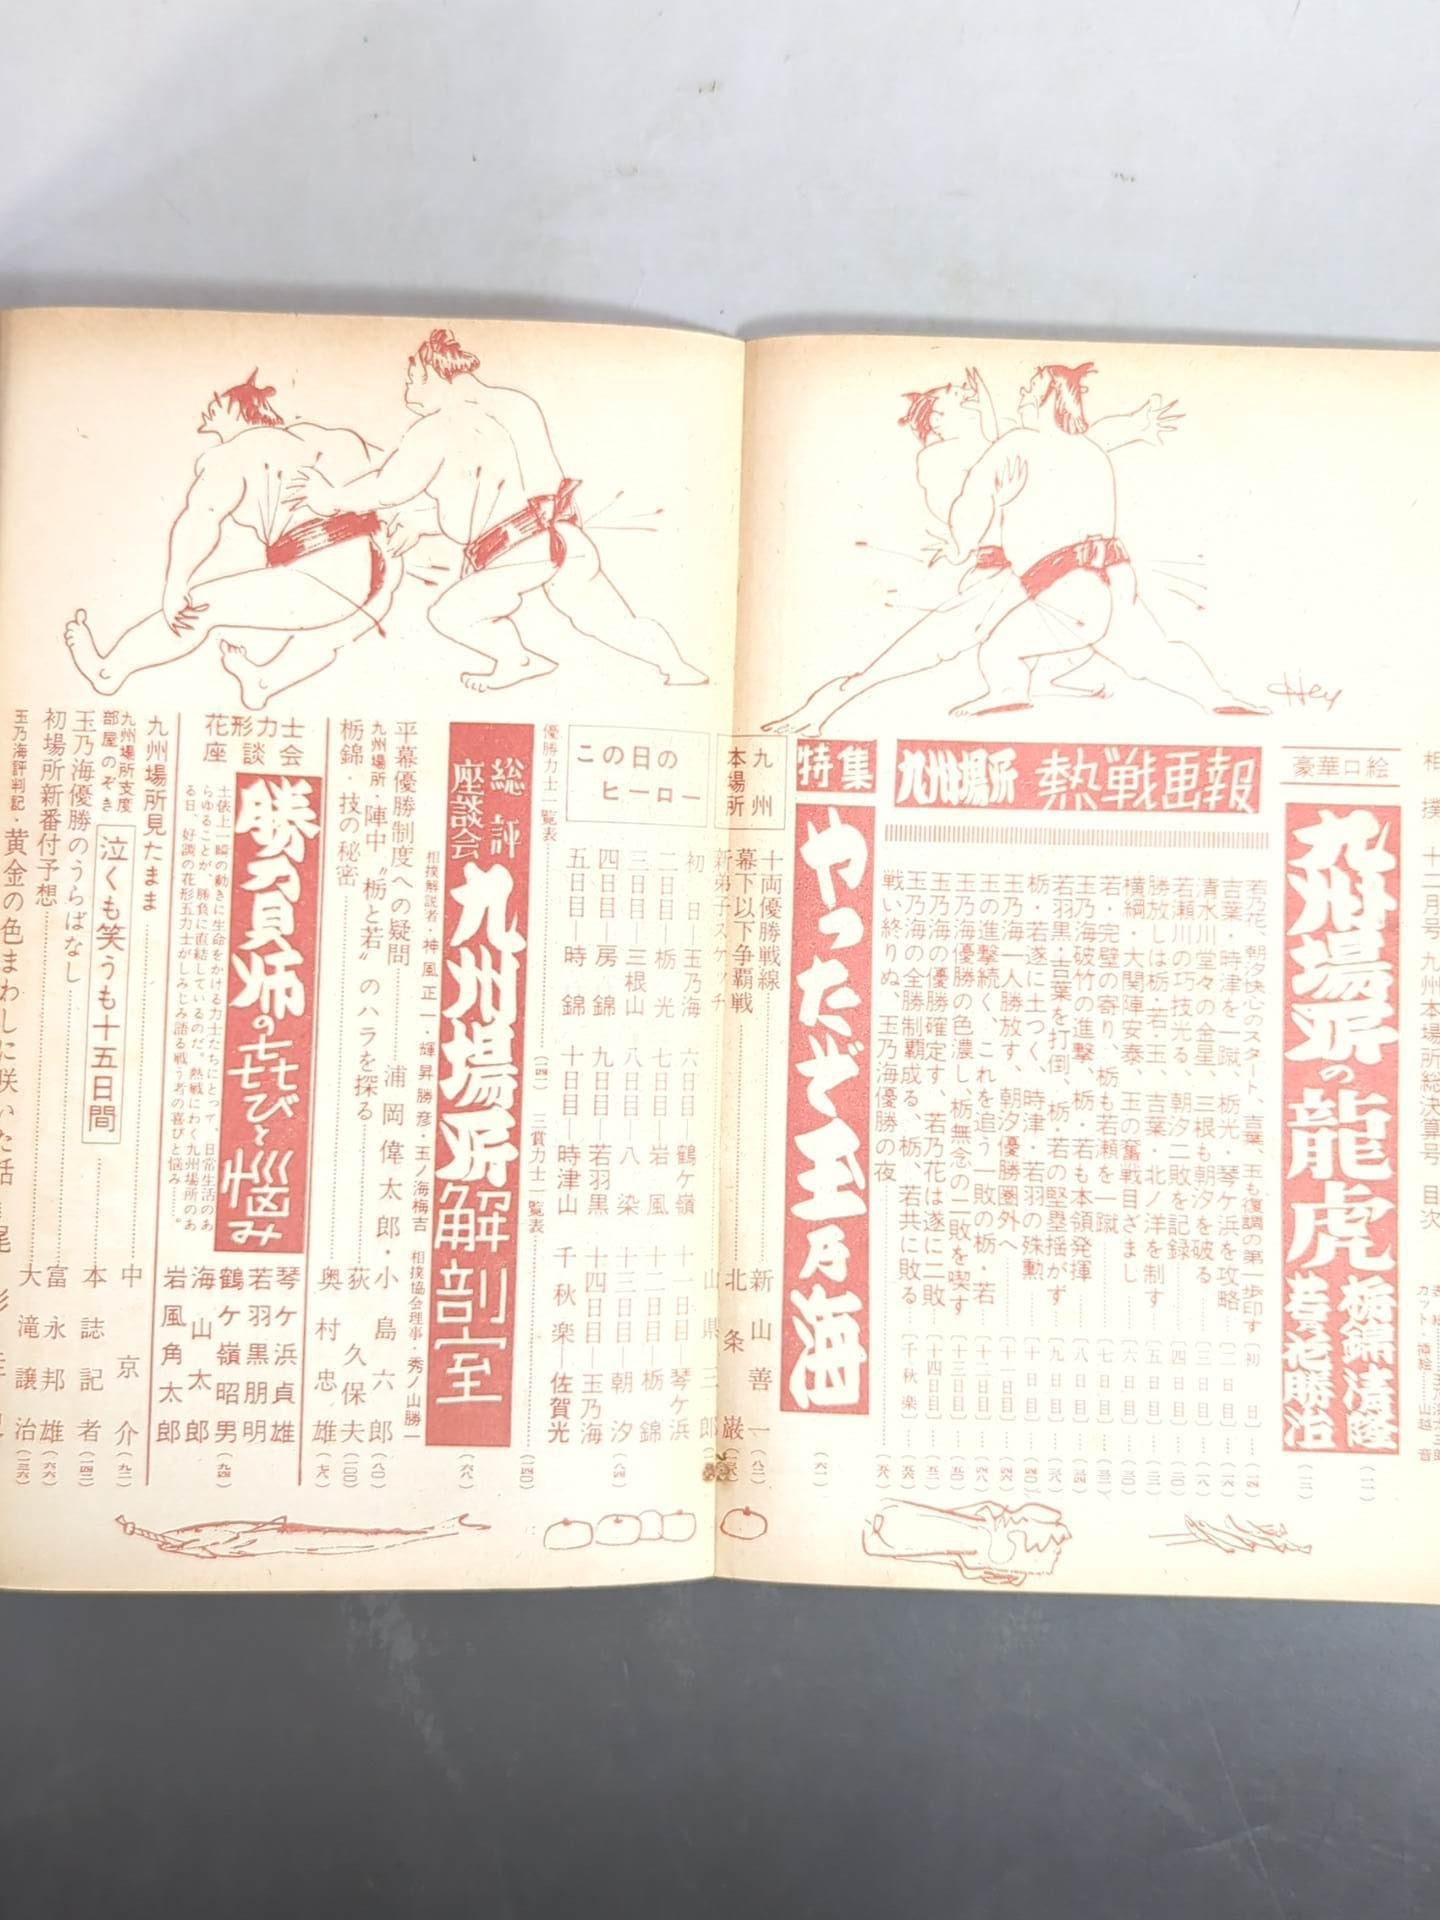 相撲 十二月号 九州本場所総決算号 目次
豪華口絵
九州場所の龍虎
栃錦清隆
若乃花勝治
九州場所 熱戦画報
若乃花、朝汐快心のスタート、吉葉、玉も復調の第一歩印す〔初日〕
吉葉・時津を一蹴、栃光・琴ケ浜を攻略〔二日目〕
清水川堂々の金星、三根も朝汐を破る〔三日目〕
若瀬川の巧技光る、朝汐二敗を記録〔四日目〕
勝放しは栃・若・玉、吉葉・北ノ洋を制す〔五日目〕
横綱・大関陣安泰、玉の奮戦目ざまし〔六日目〕
若・完璧の寄り、栃も若瀬を一蹴〔七日目〕
玉乃海破竹の進撃、栃・若も本領発揮〔八日目〕
若羽黒吉葉を打倒、栃・若の堅塁揺がず〔九日目〕
栃・若遂に土つく、時津・若羽の殊勲〔十日目〕
玉乃海一人勝放す、朝汐優勝圏外へ〔十一日目〕
玉の進撃続く、これを追う一敗の栃・若
玉乃海優勝の色濃し、栃無念の二敗を喫す〔十三日目〕
玉乃海の優勝確定す、若乃花は遂に二敗〔十四日目〕
玉乃海の全勝制覇成る、栃、若共に敗る〔千秋楽〕
戦い終りぬ、玉乃海優勝の夜
特集
やったぞ玉乃海
九州本場所
十両優勝戦線 新山善一
幕下以下争覇戦 北条巌
新弟子スケッチ 山県三郎
この日のヒーロー
初日―玉乃海 六日目―鶴ケ嶺 十一日目―琴ケ浜
二日目―栃光 七日目―岩風 十二日目―栃錦
三日目―三根山 八日目―八染 十三日目―朝汐
四日目―房錦 九日目―若羽黒 十四日目―玉乃海
五日目―時錦 十日目―時津山 千秋楽―佐賀光
優勝力士一覧表 三賞力士一覧表
総評座談会
九州場所解剖室
相撲解説者・神風正一・輝昇勝彦・玉ノ海梅吉 相撲協会理事・秀ノ山勝一
平幕優勝制度への疑問 浦岡偉太郎・小島六郎
九州場所 陣中“栃と若”のハラを探る 荻久保夫
栃錦・技の秘密 奥村忠雄
花形力士座談会
勝負師の喜びと悩み
土俵上一瞬の動きに生命をかける力士たちにとって、日常生活のあ
らゆることが、勝負に直結しているのだ。熱戦にわく九州場所のあ
る日、好調の花形五力士がしみじみ語る戦う者の喜びと悩み……。
琴ケ浜貞雄
若羽黒朋明
鶴ケ嶺昭男
海山太郎
岩風角太郎
九州場所見たまま 中京介
九州場所支度部屋のぞき 泣くも笑うも十五日間 本誌記者
玉乃海優勝のうらばなし 富永邦雄
初場所新番付予想 大滝譲治
玉乃海評判記・黄金の色まわしに咲いた話
Hey